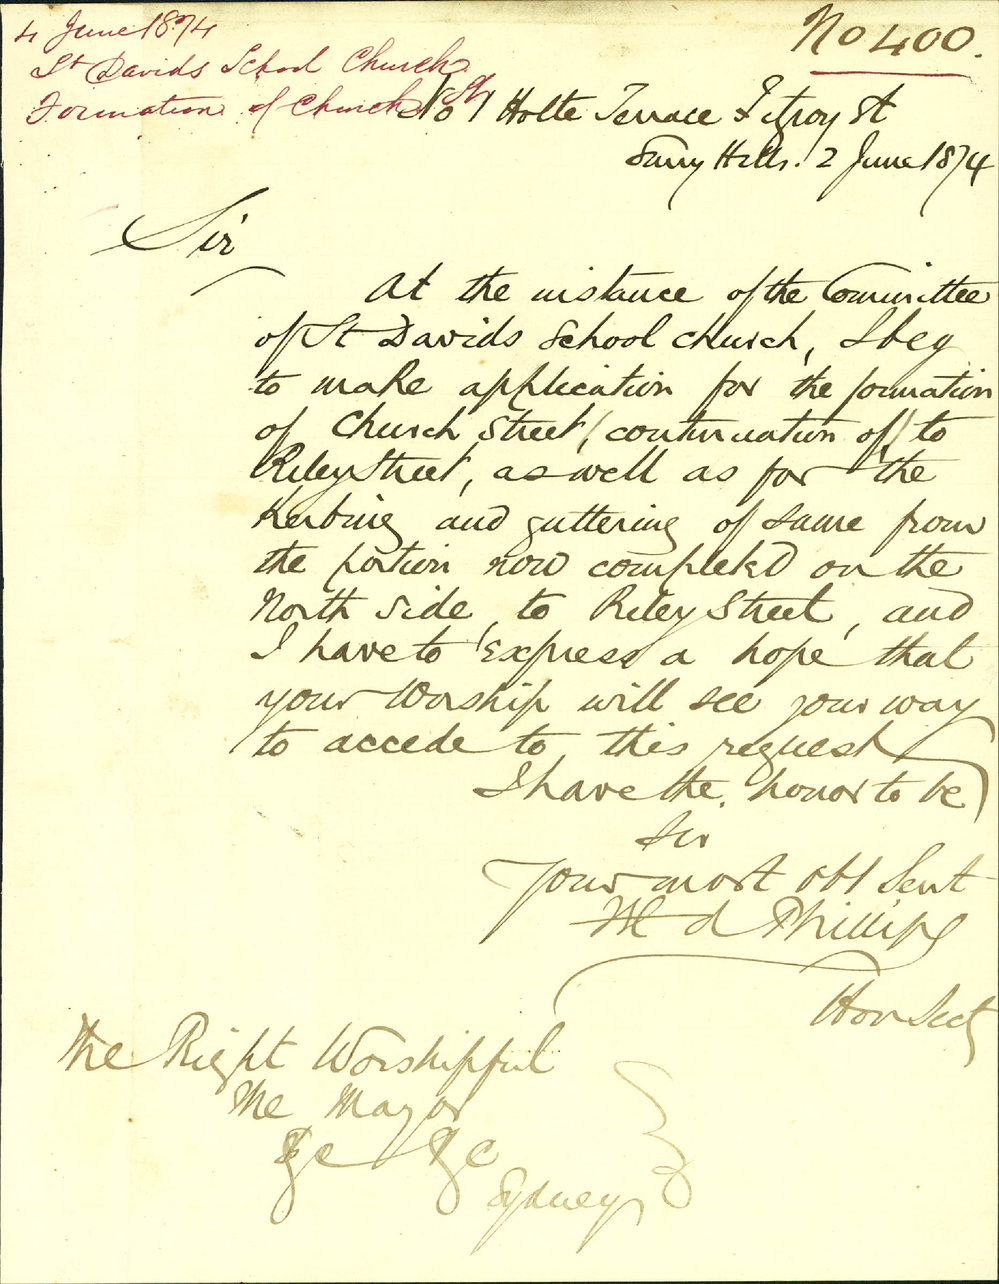 4 June 1874
St Davids School Church
Formation of Church St
No 400.
No 1 Holte Terrace Fitzroy St
Surry Hills. 2 June 1874
Sir
At the instance of the Committee
of St Davids School church, I beg
to make application for the formation
of Church Street, (continuation of) to
Riley Street, as well as for the
Kerbing and guttering of same from
the portion now completed on the
North side, to Riley Street, and
I have to express a hope that
your Worship will see your way
to accede to this request
I have the honor to be
Sir
Your most obt Servt
M d Phillips
Hon Secty
The Right Worshipful
The Mayor
&c &c
Sydney